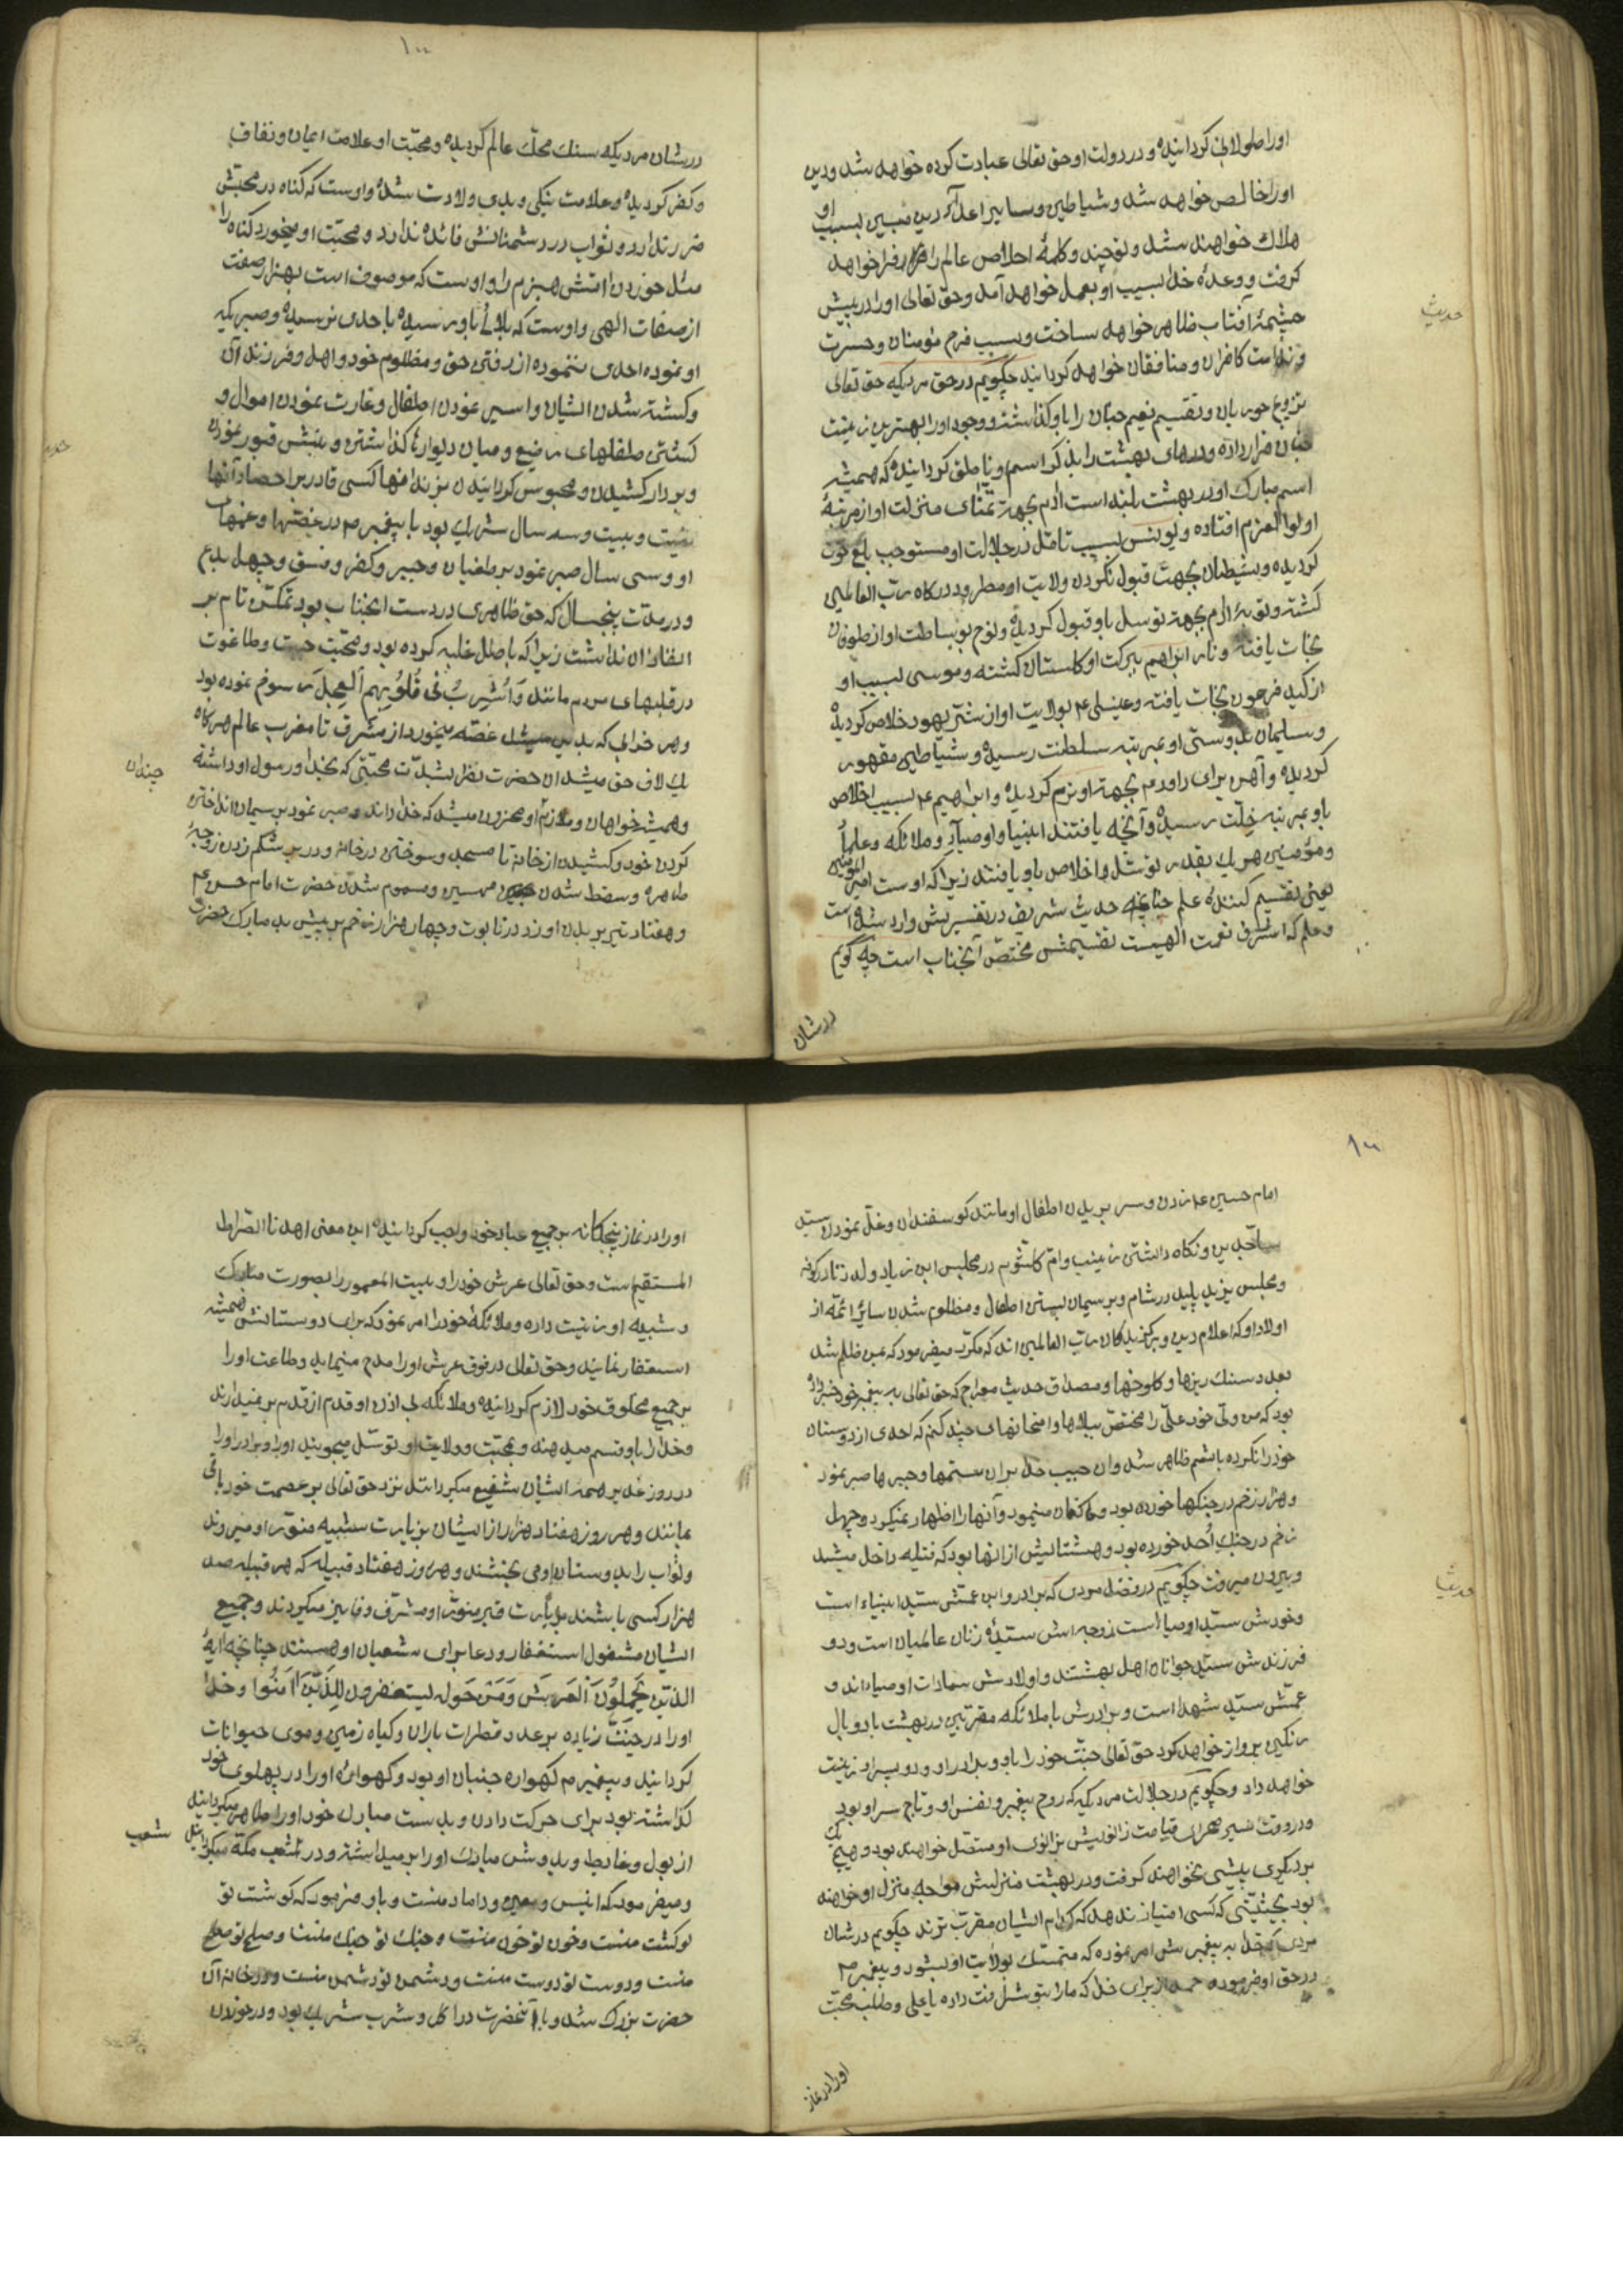 اورا طولانی گردانیده و در دولت او حق تعالی عبادت کرده خواهد شد و دین
او را خالص خواهد شد و شیاطین و سایر اعدآء دین مبین بسبب او
هلاک خواهند شد و توحید و کلمهٔ اخلاص عالم را فرا خواهد
گرفت و وعدهٔ خدا بسبب او بعمل خواهد آمد و حق تعالی او را در پیش
چشمهٔ آفتاب ظاهر خواهد ساخت و بسبب فرح مؤمنان و حسرت
و ندامت کافران و منافقان خواهد گردانید چگویم در حق مردیکه حق تعالی
تزویج حوریان و تقسیم نعیم جنان را باو گذاشته و وجود او را بهترین زینت
جنان قرار داده و درهای بهشت را بذکر اسم او ناطق گردانیده که همیشه
اسم مبارک او در بهشت بلند است آدم بجهة تمنای منزلت او از مرتبهٔ
اولوا العزم افتاده و یونس بسبب تامّل در جلالت او مستوجب بلع حوت
گردیده و شیطان بجهت قبول نکردن ولایت او مطرود درگاه ربّ العالمین
گشته و توبهٔ آدم بجهة توسل باو قبول گردیده و نوح بوساطت او از طوفان
نجات یافته و نار ابراهیم ببرکت او گلستان گشته و موسی بسبب او
از کید فرعون نجات یافته و عیسی ع م بولایت او از شرّ یهود خلاص گردیده
و سلیمان بدوستی او بمرتبه سلطنت رسیده و شیاطین مقهور
گردیده و آهن برای داود ع م بجهة او نرم گردیده و ابراهیم ع م بسبب اخلاص
باو بمرتبه خلّت رسیده و آنچه یافتند انبیا و اوصیآء و ملائکه و علماً
و مؤمنین هر یک بقدر توسّل و اخلاص باو یافتند زیرا که اوست امیر المؤمنین
یعنی تقسیم کنندهٔ علم چنانچه حدیث شریف در تفسیرش وارد شده است
و علم که اشرف نعمت الهیست تقسیمش مختصّ آنجناب است چه گویم
در شان
حدیث
۱۰۰
در شان مردیکه سنک محکّ عالم گردیده و محبّت او علامت ایمان و نفاق
و کفر گردیده و علامت نیکی و بدی ولادت شده و اوست که گناه در محبتش
ضرر ندارد و ثواب در دشمنانش فائده ندارد و محبّت او میخورد گناه را
مثل خوردن آتش هیزم را و اوست که موصوف است بهزار صفت
از صفات الهی و اوست که بلائی باو رسیده باحدی نرسیده و صبریکه
او نموده احدی ننموده از رفتن حق و مظلوم خود و اهل و فرزندان
و کشته شدن ایشان و اسیر نمودن اطفال و غارت نمودن اموال و
کشتن طفلهای رضیع و میان دیوارها گذاشتن و نبش قبور نمودن
و بردار کشیدن و محبوس گردانیدن بزندانها کسی قادر بر احصاء آنها
نیست و بیست و سه سال شریک بود با پیغمبر ص در غصّها و غمهای
او و سی سال صبر نمود بر طغیان و جبر و کفر و فسق و جهل بدع
و در مدّت پنجسال که حق ظاهری در دست آنجناب بود تمکّن تام بر
انفاذ آن نداشت زیرا که باطل غلبه کرده بود و محبّت جبت و طاغوت
در قلبهای مردم مانند وَاُشرِبُ فی قُلُوبِهِم العِجلَ رسوخ نموده بود
و هر خرابی که بدین میشد غصّه میخورد از مشرق تا مغرب عالم هرگاه
یک لاف حق میشد آن حضرت نظر بشدّت محبّتی که بخدا و رسول او داشته
چندان
و همیشه خواهان و ملازم او محزون میشد که خدا داند و صبر نمود بریسمان انداختن
کردن خود و کشیدن از خانه تا مسجد و سوختن در خانه و در بر شکم زدن زوجهٔ
طاهره و سقط شدن محسن و مسموم شدن حضرت امام حسن ع م
و هفتاد تیر بر بدن او زدن در تابوت و چهار هزار زخم بر پیش بدن مبارک حضرت
امام حسین ع م زدن و سر بریدن اطفال او مانند گوسفندان و غلّ نمودن سیّد
ساجدین و نگاه داشتن زینب و امّ کلثوم در مجلس ابن زیاد ولد زنا در کوفه
و مجلس یزید پلید در شام و بریسمان بستن اطفال و مظلوم شدن سایر ائمّه از
اولاد او که اعلام دین و برگزیدگان ربّ العالمین اند که مکرّر میفرمود که بمن ظلم شد
بعدد سنک ریزها و کلوخها و مصداق حدیث معراج که حق تعالی به پیغمبر خود خبر داده
بود که من ولّی خود علّی را مختصّ ببلاها و امتحانهای چند کنم که احدی از دوستان
خود را نکرده باشم ظاهر شد و آن حبیب خدا بر آن ستمها و جبرها صبر نمود
و هزار زخم در جنگها خورده بود و کتمان مینمود و آنها را اظهار نمیکرد و چهل
زخم در جنک اُحد خورده بود و هشتایش از آنها بود که فتیله داخل میشد
و بیرون میرفت چگویم در فضل مردی که برادر و ابن عمّش سیّد انبیاء است
و خودش سیّد اوصیا است زوجه اش سیّدهٔ زنان عالمیان است و دو
فرزندش سیّد جوانان اهل بهشتند و اولادش سادات اوصیاء اند و
عمّش سیّد شهدا است و برادرش با ملائکه مقرّبین در بهشت با دو بال
رنگین پرواز خواهد کرد حق تعالی جنّت خود را باو و برادر او و دو پسر او زینت
خواهد داد و چگویم در جلالت مردیکه روح پیغمبر و نفس او و تاج سر او بود
و در وقت سیر صحرای قیامت زانویش بزانوی او متصّل خواهد بود و هیچ یک
بر دیگری پیشی نخواهند گرفت و در بهشت منزلش مواجه منزل او خواهد
بود بحیثیّتی که کسی امتیاز ندهد که کدام ایشان مقرّب ترند چگویم در شان
مردی که خدا به پیغمبرش امر نموده که متمسّک بولایت او بشود و پیغمبر ص
در حق او فرموده حمد از برای خدا که ما را بتو شرافت داده یا علی و طلب محبّت
او را در نماز
او را در نماز پنجگانه بر جمیع عباد خود واجب گردانیده این معنی اهدنا الصّراط
المستقیم است و حق تعالی عرش خود را و بیت المعمور را بصورت مبارک
و شبیه او زینت داده و ملائکه خود را امر نمود که برای دوستانش همیشه
استغفار نمایند و حق تعالی در فوق عرش او را مدح مینماید و طاعت او را
بر جمیع مخلوق خود لازم گردانیده و ملائکه بی اذن او قدم از قدم بر نمیدارند
و خدا را باو قسم میدهند و بمحبّت و ولایت او توسّل میجویند او را و برادر او را
در روز غدیر همه ایشان شفیع میگردانند نزد حق تعالی بر عصمت خود باقی
بمانند و هر روز هفتاد هزار از ایشان بزیارت شبیه منوّر او میروند
و ثواب را بدوستان او می بخشند و هر روز هفتاد قبیله که هر قبیله صد
هزار کسی باشند بزیارت قبر منوّر او مشرّف و فایز میگردند و جمیع
ایشان مشغول استغفار و دعا برای شعیان او هستند چنانچه آیهٔ
الذّینَ یَحمِلُونَ العَرشَ وَمَن حَوله لیستغفرون لِلذّینَ امَنُوا و خدا
او را در جنّت زیاده بر عدد قطرات باران و گیاه زمین و موی حیوانات
گردانید و پیغمبر ص گهواره جنبان او بود و گهوارهٔ او را در پهلوی خود
گذاشته بود برای حرکت دادن و بدست مبارک خود او را طاهر میگردانید
از بول و غایط و بدوش مبارک او را بر میداشته و در شعب مکه میگردانید
شعب
و میفرمود که انیس و معین و داماد منست و باو فرمود که گوشت تو
گوشت منست و خون تو خون منست و جنک تو جنک منست و صلح تو صلح
منست و دوست تو دوست منست و دشمن تو دشمن منست و در خانه آن
حضرت بزرک شد و با آنحضرت در اکل و شرب شریک بود و در خوردن